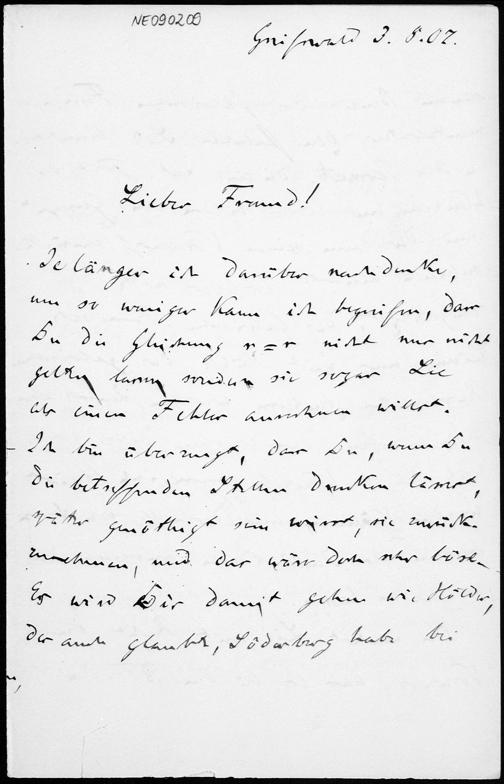 NE090200
Greifswald 3. 8. 07.
Lieber Freund!
Je länger ich darüber nachdenke,
um so weniger kann ich begreifen, dass
Du die Gleichung r=r nicht nur nicht
gelten lassen sondern sie sogar Lie
als einen Fehler anrechnen willst.
Ich bin überzeugt, dass Du, wenn Du
die betreffenden Stellen drucken lässest,
später genöthigt sein wirst, sie zurück-
zunehmen, und das wäre doch sehr böse.
Es wird Dir damit gehen wie Hölder,
der auch glaubte, Söderberg habe bei